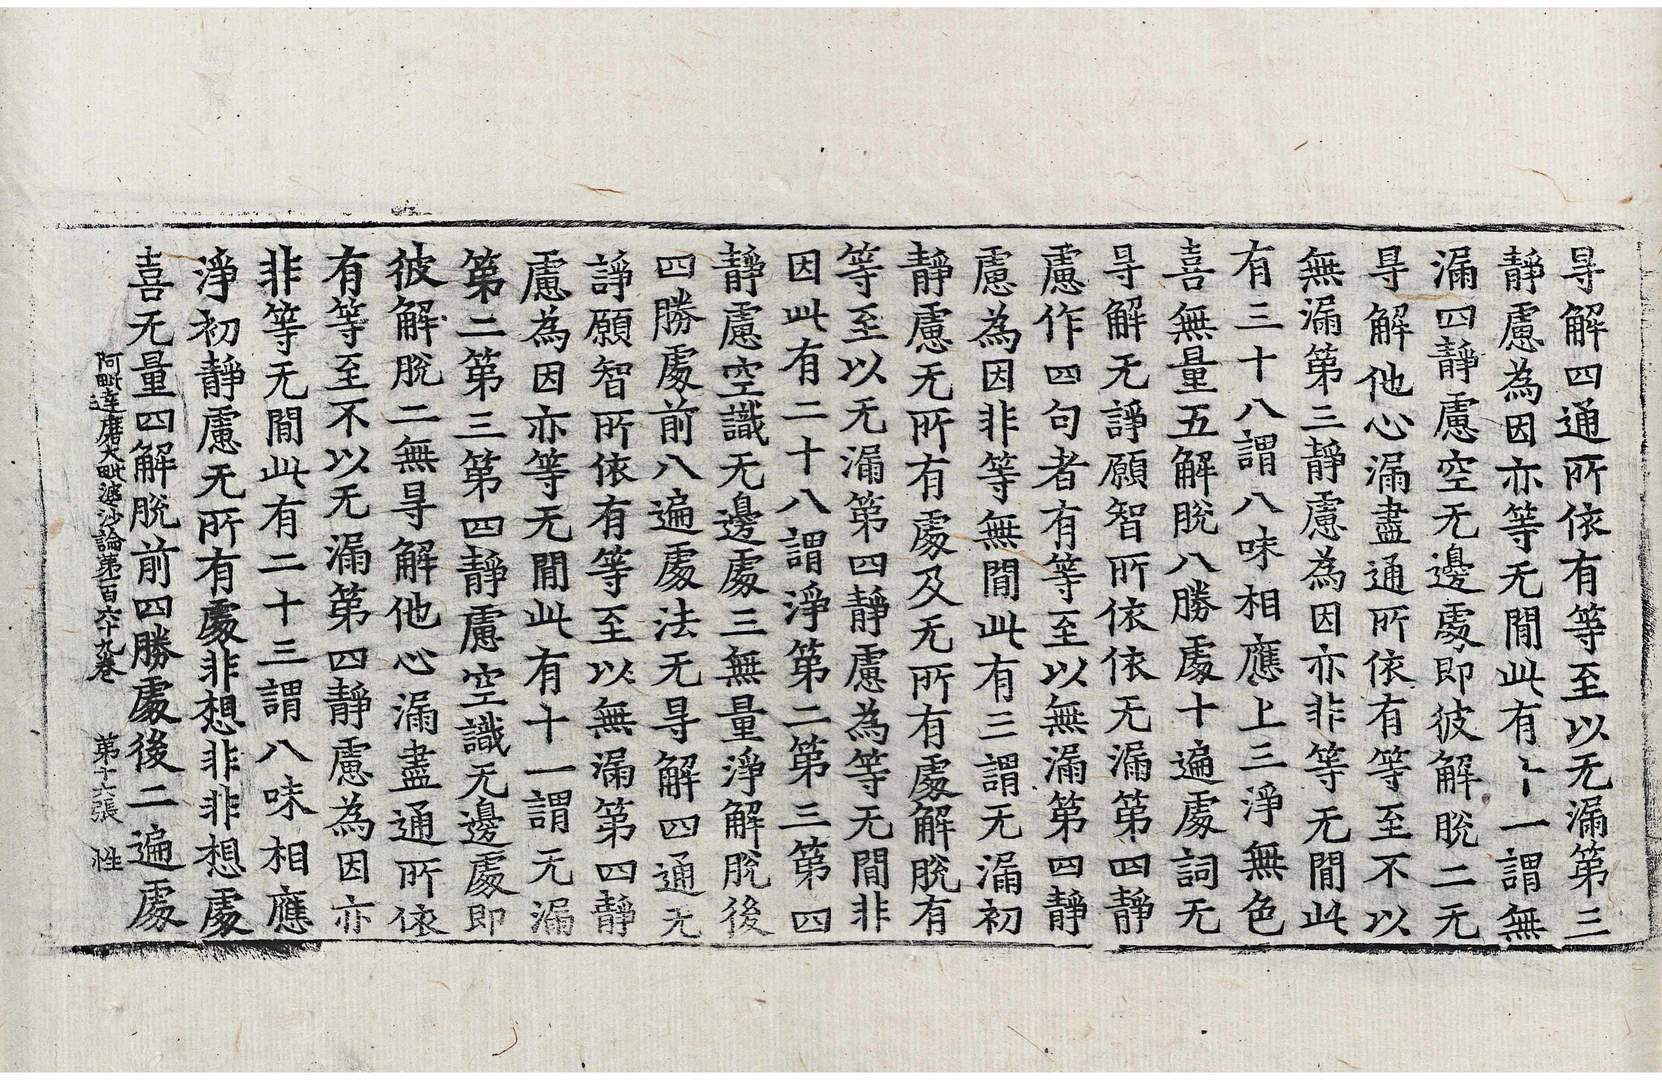 㝵解四通所依有等至以无漏第三
靜慮為因亦等无閒此有一謂無
漏四靜慮空无邊處即彼解脫二无
㝵解他心漏盡通所依有等至不以
無漏第三靜慮為因亦非等无閒此
有三十八謂八味相應上三淨無色
喜無量五解脫八勝處十遍處詞无
㝵解无諍願智所依依无漏第四靜
慮作四句者有等至以無漏第四靜
慮為因非等無閒此有三謂无漏初
靜慮无所有處及无所有處解脫有
等至以无漏第四靜慮為等无閒非
因此有二十八謂淨第二第三第四
靜慮空識无邊處三無量淨解脫後
四勝處前八遍處法无㝵解四通无
諍願智所依有等至以無漏第四靜
慮為因亦等无閒此有十一謂无漏
第二第三第四靜慮空識无邊處即
彼解脫二無㝵解他心漏盡通所依
有等至不以无漏第四靜慮為因亦
非等无閒此有二十三謂八味相應
淨初靜慮无所有處非想非非想處
喜无量四解脫前四勝處後二遍處
阿毗達磨大毗婆沙論第一百六十九卷 第十六張 性